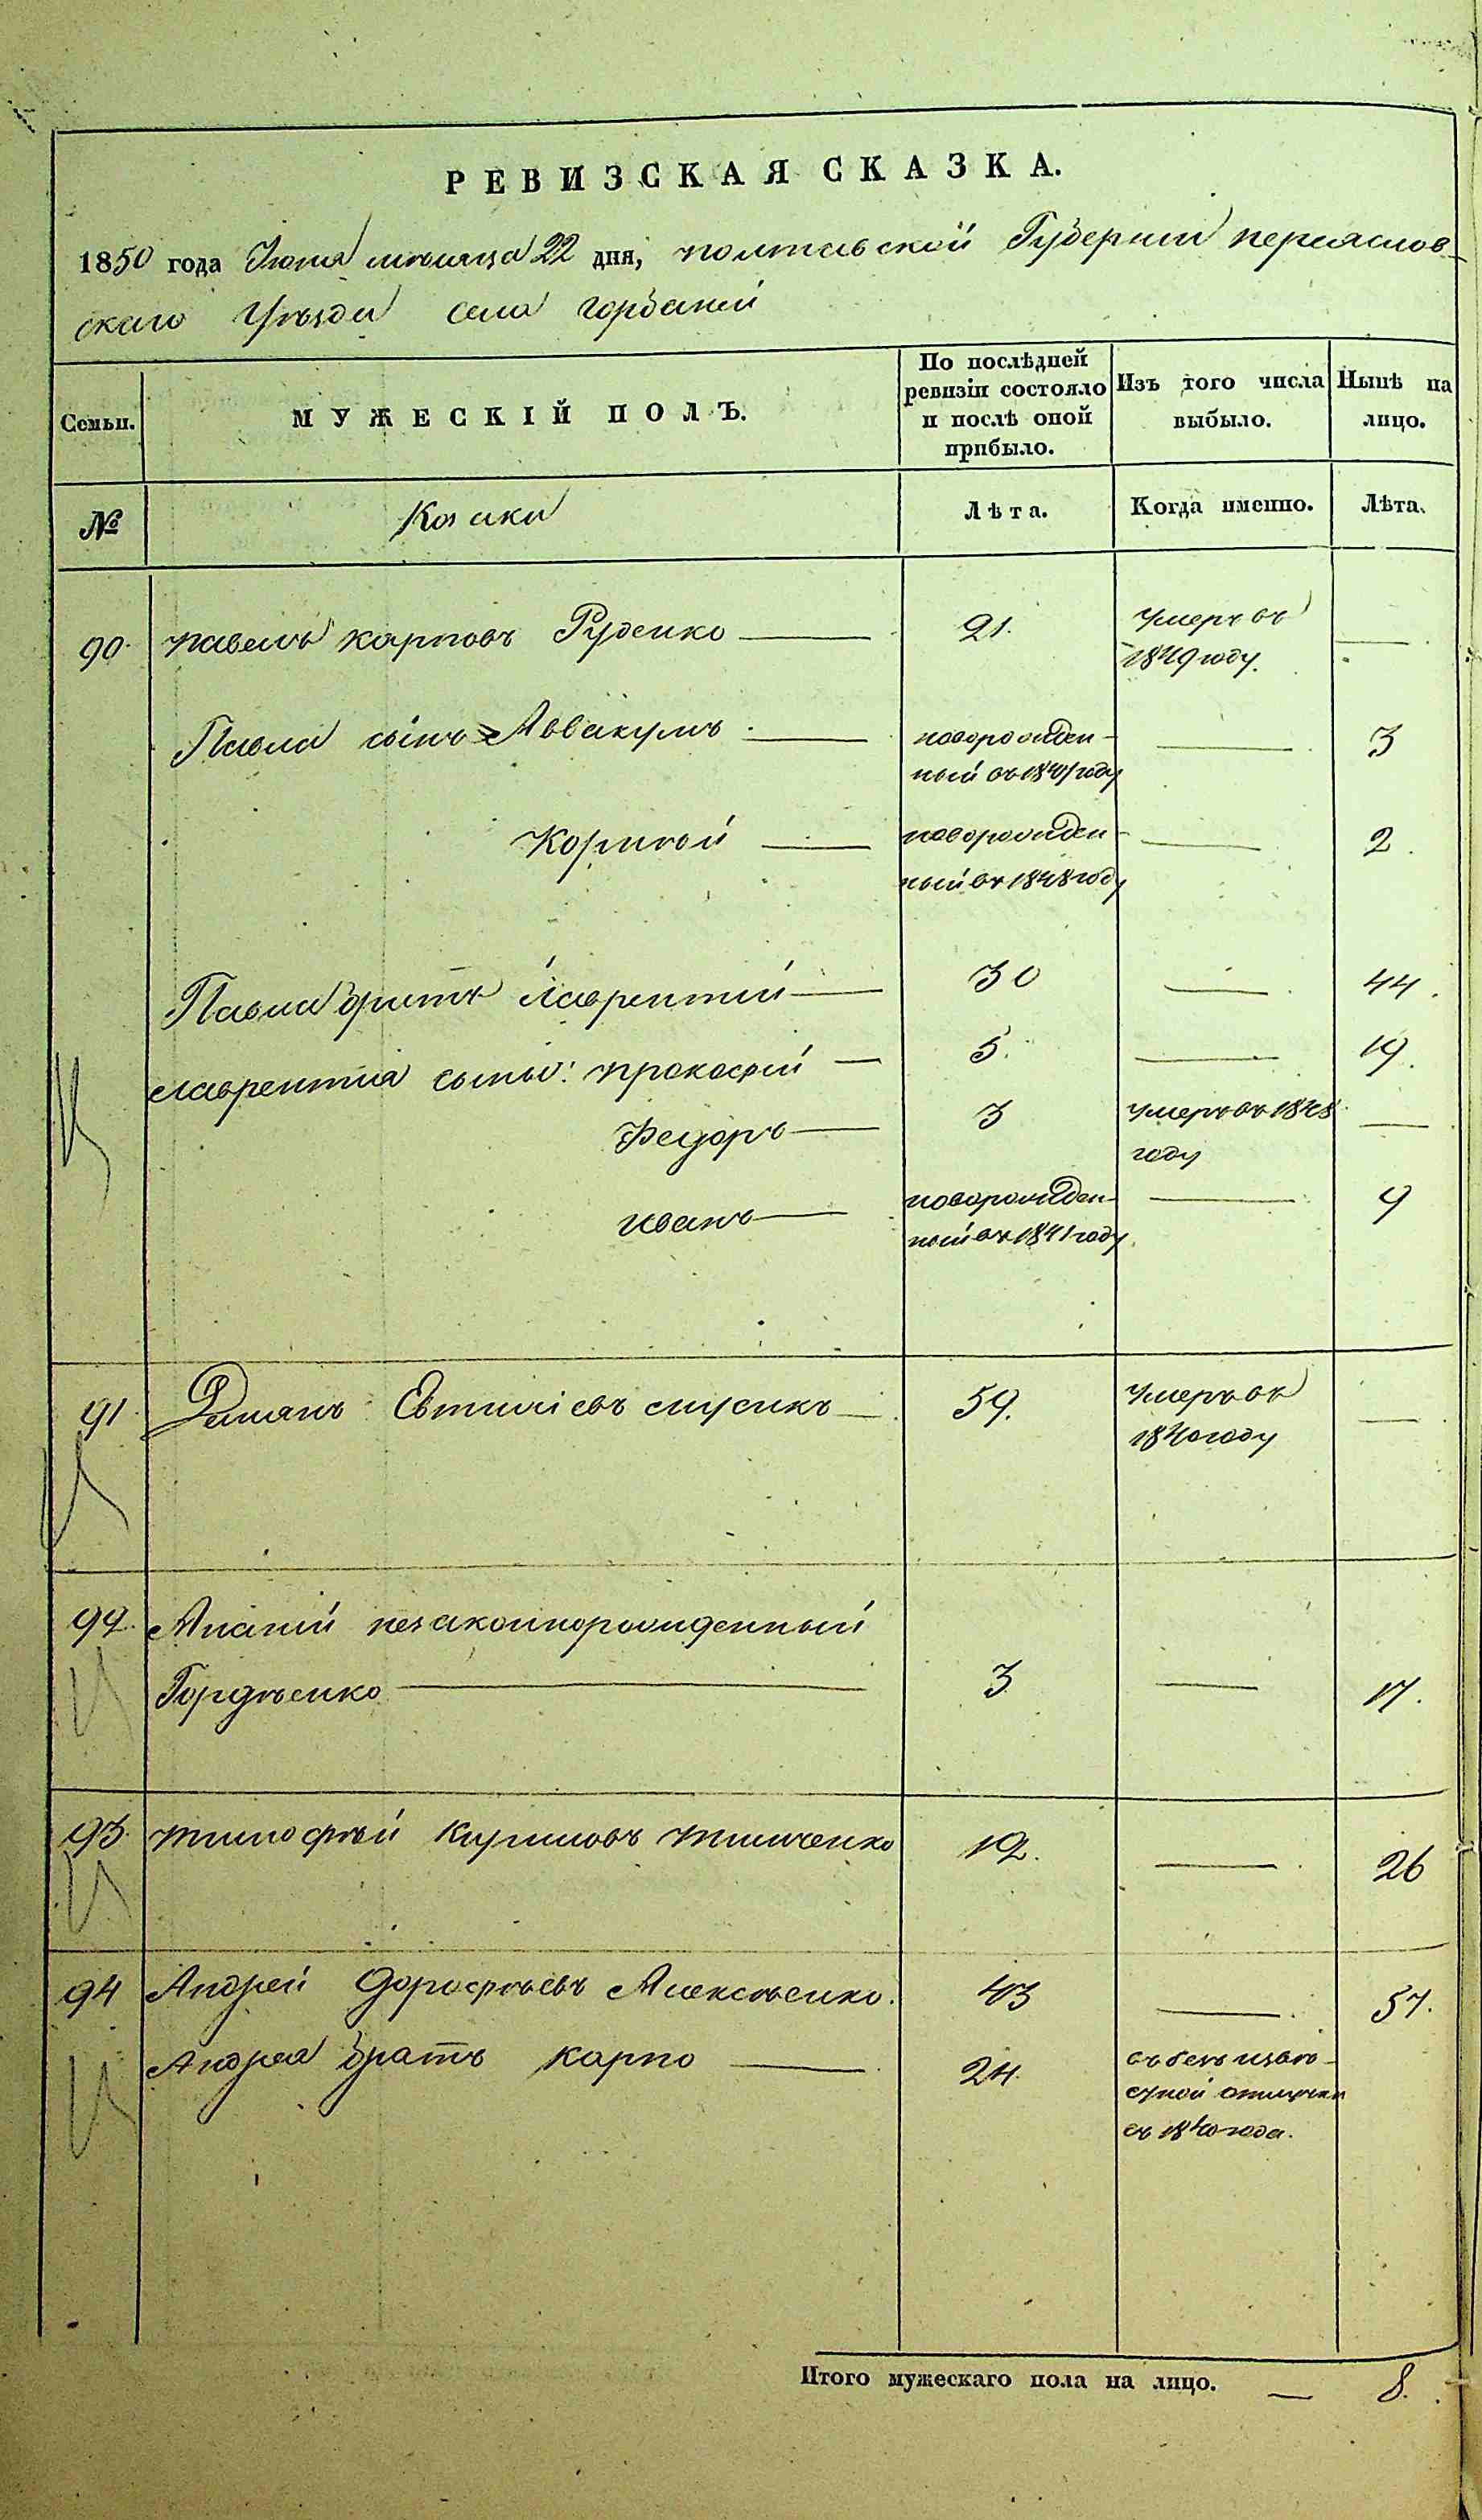 РЕВИЗСКАЯ СКАЗКА.
1850 года Июня мѣсяца 22 дня, полтавской Губерніи переяслов-
скаго Уѣзда села горбаней
Семьи.
МУЖЕСКІЙ ПОЛЪ.
По послѣдней ревизіи состояло и послѣ оной прибыло.
Изъ того числа выбыло.
Нынѣ на лицо.
№
Козаки
Лѣта.
Когда именно.
Лѣта.
90. павелъ карповъ Руденко 21. умеръ въ
1849 году.
Павла сынъ Аввакумъ новорожден-
ный въ 1847 году 3
Корнѣй новорожден-
ный въ 1848 году 2
Павла братъ лаврентій 30 44.
лаврентія сыны: прокофій 5. 19.
Федоръ 3 умеръ въ 1848
году
иванъ новорожден-
ный въ 1841 году 9
91. Евтихіевъ 59. умеръ въ
1840 году
92. Ананій незаконнорожденный
Гордѣенко 3 17.
93. тимофѣй Кириловъ тимченко 12. 26
94 Андрей дорофѣевъ Алексѣенко. 43 57.
Андрея братъ карпо 24. въ безъизвѣ-
стной отлучки
съ 1840 года.
Итого мужескаго пола на лицо. — 8.